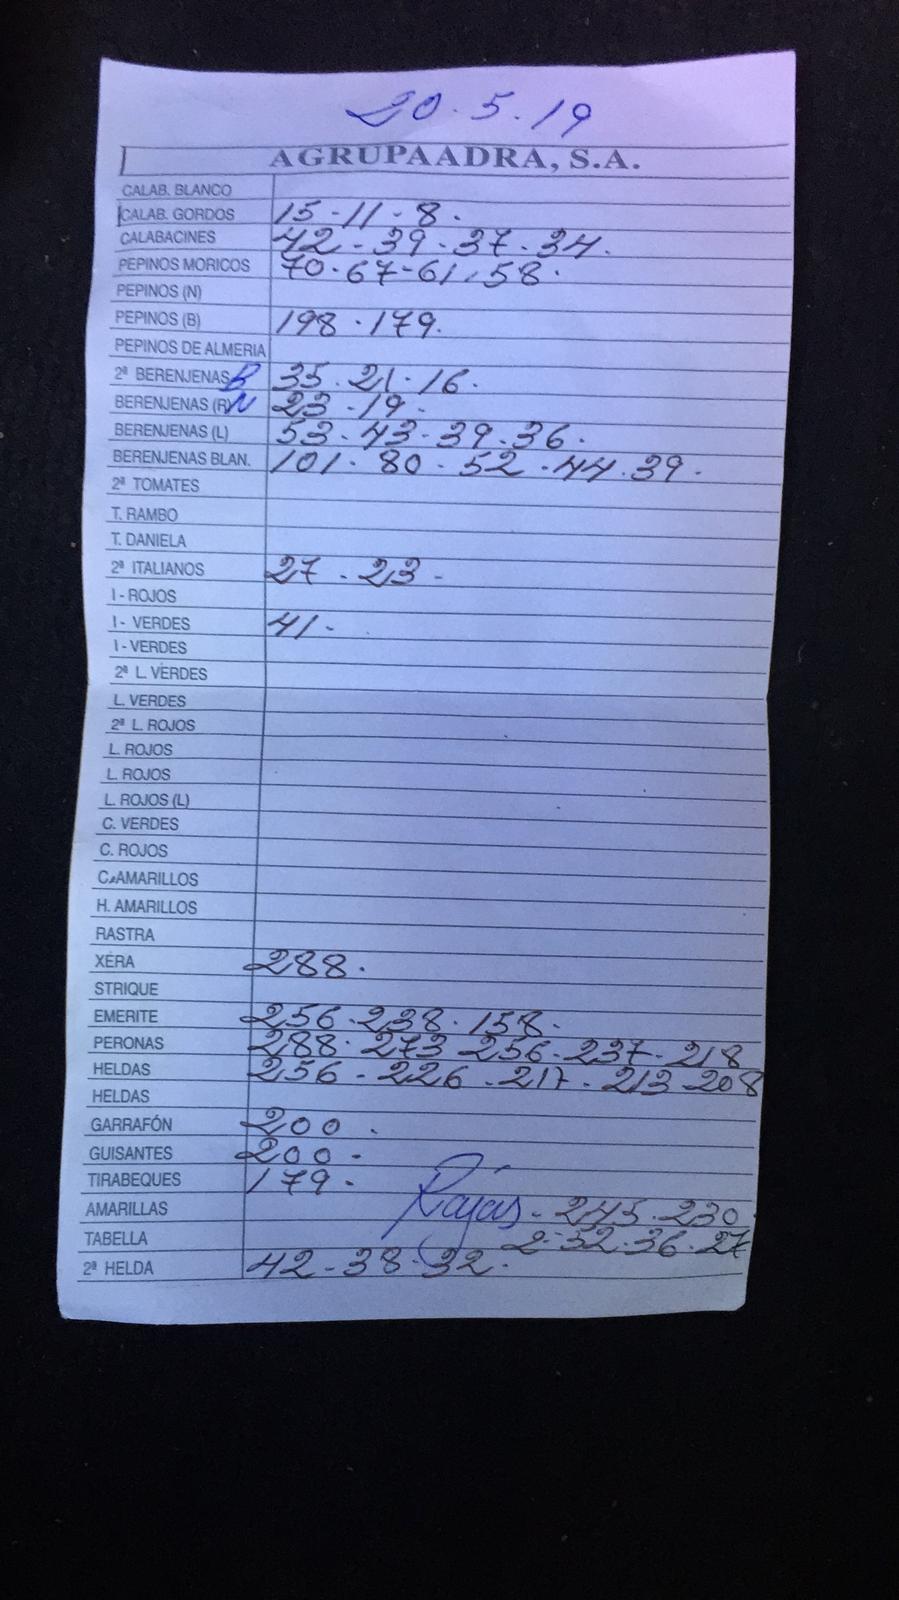 20.5.19
AGRUPAADRA, S.A.
CALAB. BLANCO
CALAB. GORDOS 15-11-8.
CALABACINES 42-39-37-34.
PEPINOS MORICOS 70.67-61.58.
PEPINOS (N)
PEPINOS (B) 198.179.
PEPINOS DE ALMERIA
2ª BERENJENAS B 35.21.16.
BERENJENAS (R) N 23-19-
BERENJENAS (L) 53-43-39.36.
BERENJENAS BLAN. 101-80-52-44.39.
2ª TOMATES
T. RAMBO
T. DANIELA
2ª ITALIANOS 27-23-
I - ROJOS
I - VERDES 41-
I - VERDES
2ª L. VERDES
L. VERDES
2ª L. ROJOS
L. ROJOS
L. ROJOS
L. ROJOS (L)
C. VERDES
C. ROJOS
C. AMARILLOS
H. AMARILLOS
RASTRA
XERA 288.
STRIQUE
EMERITE 256.238.158.
PERONAS 288.273 256-237-218
HELDAS 256-226-217-213-208
HELDAS
GARRAFÓN 200.
GUISANTES 200-
TIRABEQUES 179-
AMARILLAS Rojas-245.230
TABELLA 2-52.36.27
2ª HELDA 42-38-32.